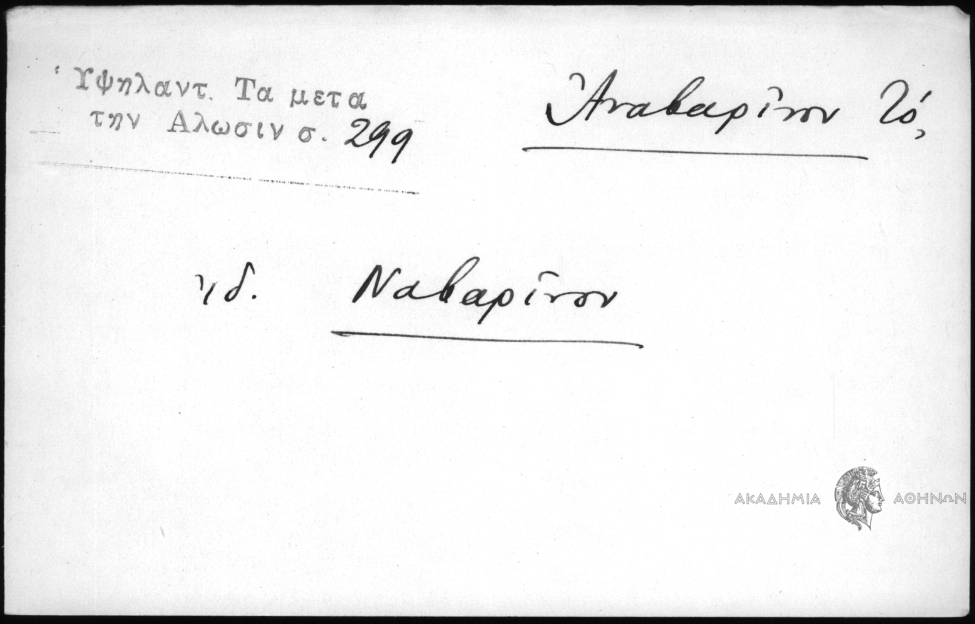 Ὑψηλαντ. Τα μετα
την Αλωσιν σ. 299
Ἀναβαρῖνον τό,
ἰδ. Ναβαρῖνον
ΑΚΑΔΗΜΙΑ ΑΘΗΝΩΝ